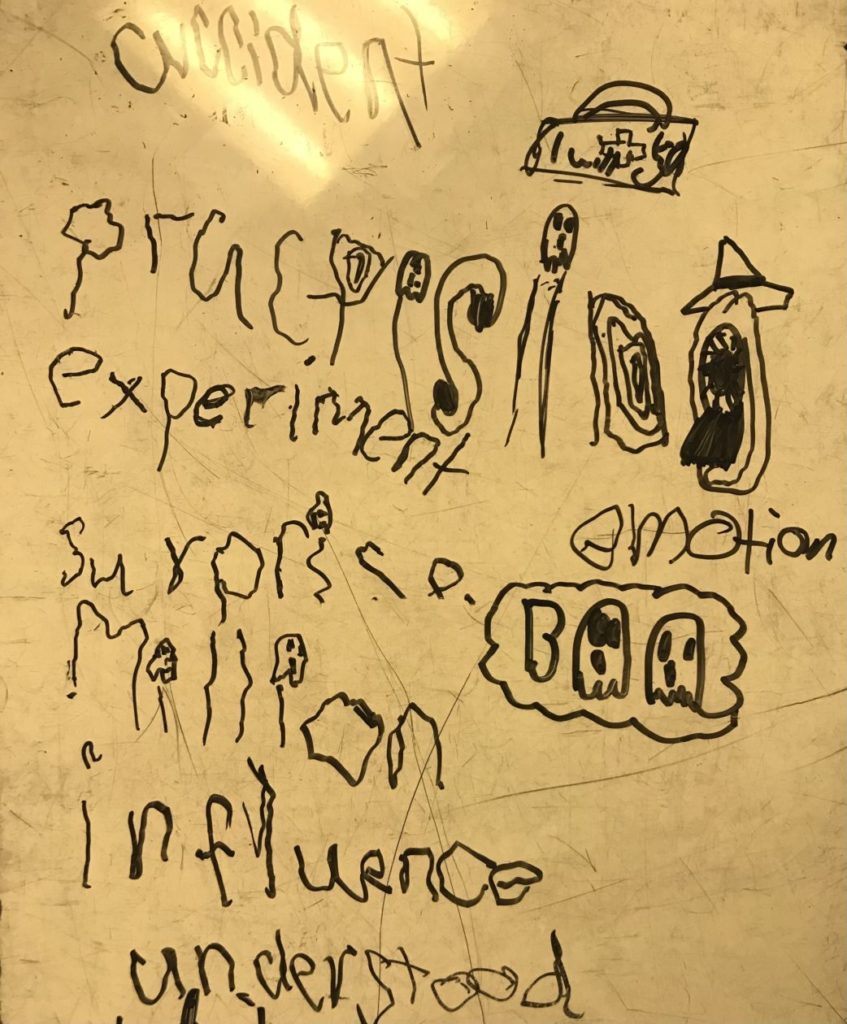 accident
I will
experiment
emotion
Surprise.
Million
BOO
influence
understood